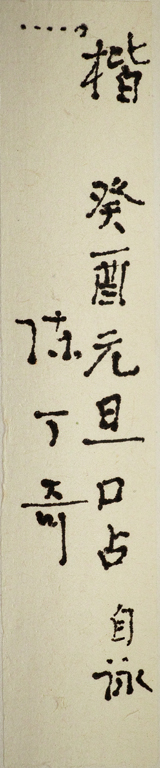 楷 癸酉元旦口占 自詠
……，陈丁奇